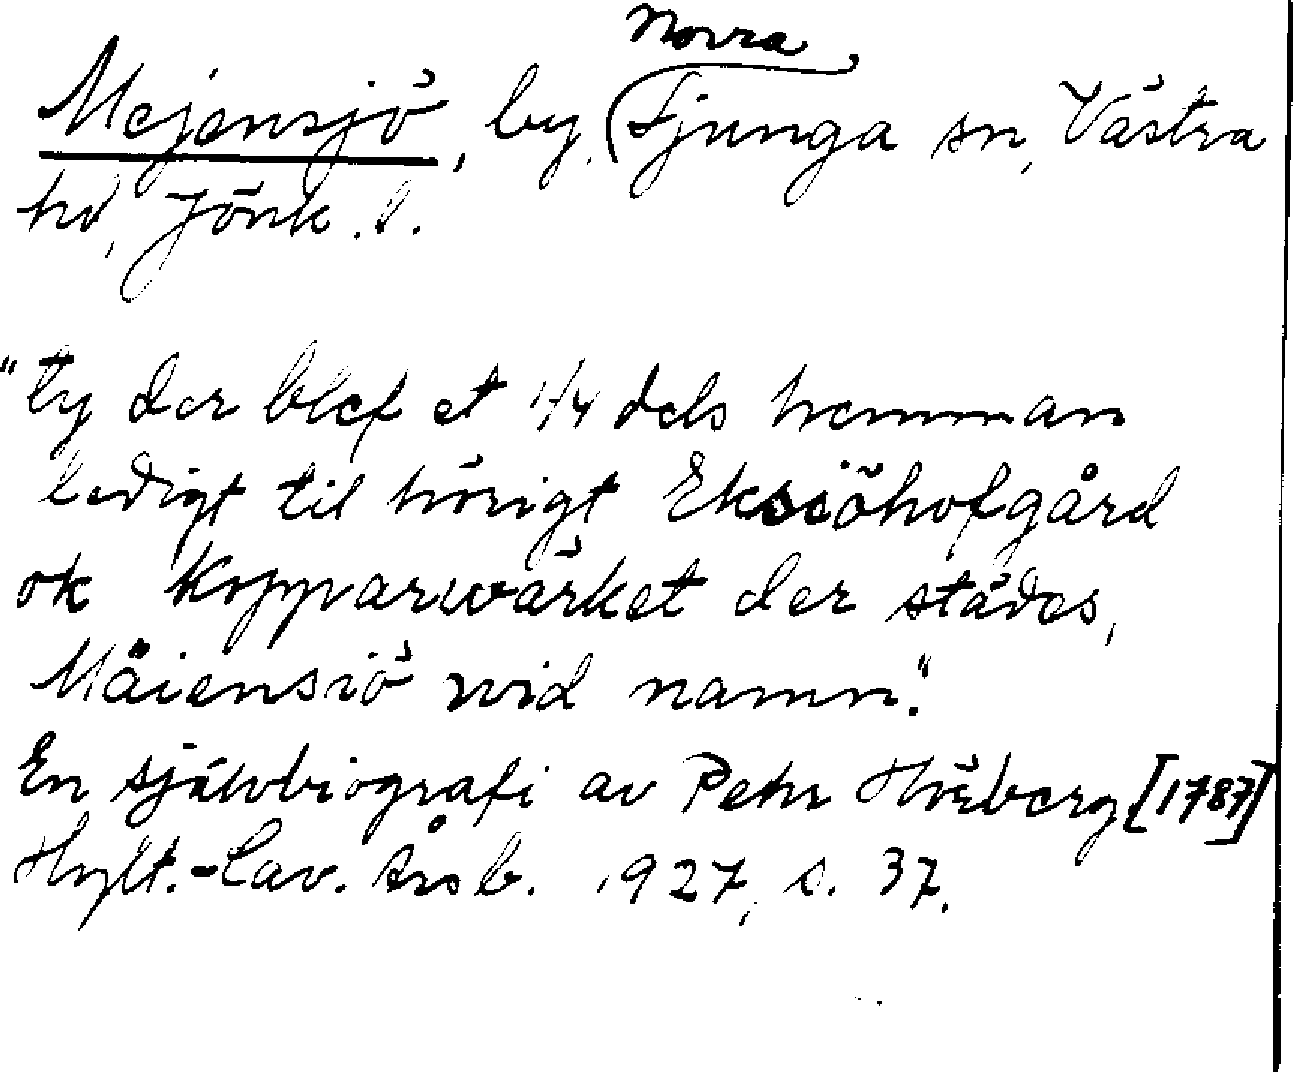 Norra
Mejensjö, by, Ljunga sn, Västra
hd, Jönk. l.
"ty der blef et 1/4 dels hemman
ledigt til hörigt Eksiöhofgård
ok Kopparwärket der städes,
Mäiensiö wid namn."
En självbiografi av Petr Hörberg [1787]
Hylt.-Cav. Årsb. 1927, s. 37.